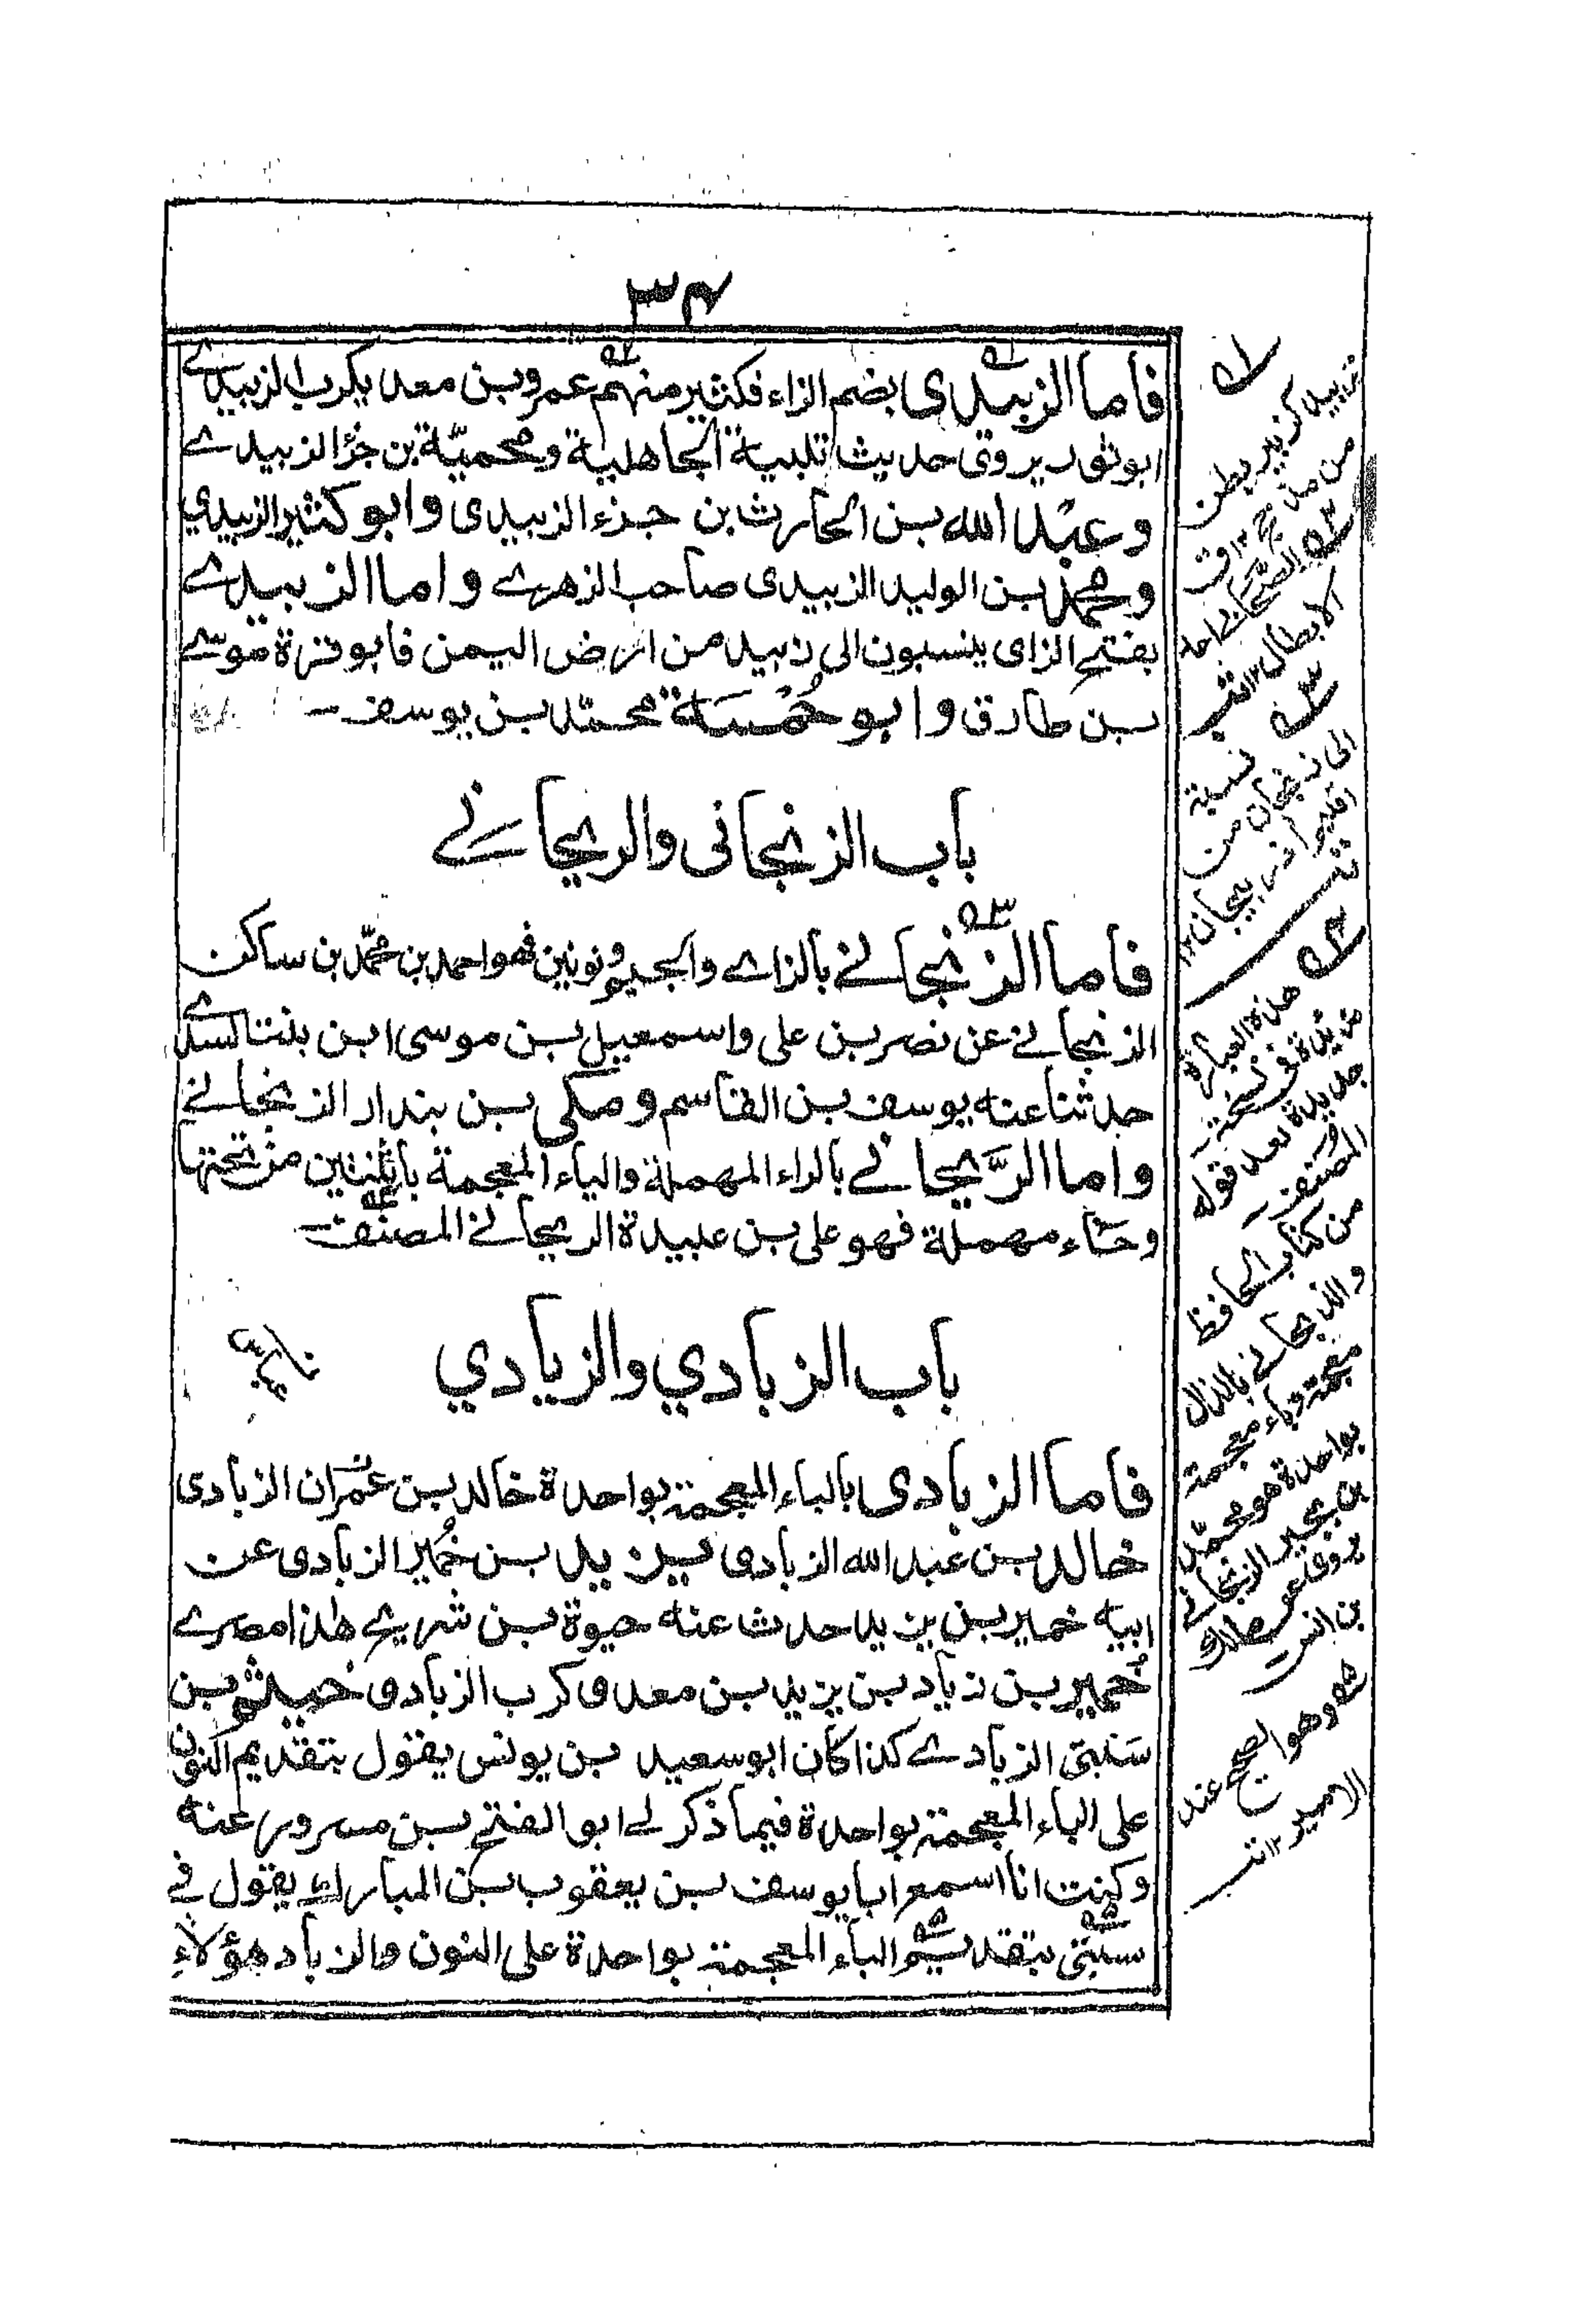 ٣٤
فاما الزبيدى بضم الزاء فكثير منهم عمرو بن معد يكرب الزبيدے
ابو ثور يروى حديث تلبية الجاهلية ومحميّة بن جزء الزبيدے
وعبد الله بن الحارث بن جزء الزبيدى وابو كثير الزبيدي
ومحمد بن الوليد الزبيدى صاحب الزهرے واما الزبيدے
بفتح الزاى ينسبون الى زبيد من ارض اليمن فابو قرة موسے
بن طارق وابو حُمَة محمد بن يوسف
باب الزنجانى والريحانے
فاما الزنجانے بالزاے والجيم ونونين فهو احمد بن محمّد بن ساكن
الزنجانے عن نصر بن على واسمعيل بن موسى ابن بنت السدے
حدثنا عنه يوسف بن القاسم ومكى بن بندار الزنجانے
واما الرَّيحانے بالراء المهملة والياء المعجمة باثنتين من تحتها
وحاء مهملة فهو على بن عبيدة الريحانے المصنّف
باب الزبادي والزيادي
فاما الزبادى بالباء المعجمة بواحدة خالد بن عمران الزبادى
خالد بن عبد الله الزبادى يزيد بن خُمير الزبادى عن
ابيه خمير بن يزيد حدث عنه حيوة بن شريح هذا مصرے
خُمير بن زياد بن يزيد بن معدى كرب الزبادى خيثم بن
سَنبتى الزبادے كذا كان ابو سعيد بن يونس يقول بتقديم النون
على الباء المعجمة بواحدة فيما ذكر لے ابو الفتح بن مسرور عنه
وكنت انا اسمع ابا يوسف بن يعقوب بن المبارك يقول فى
سبنتى بتقديم الباء المعجمة بواحدة على النون والزباد هؤلاء
١ه
زبيد كزبير بطن
من مذحج ١٢ ق
٢ه الصحابى احد
الابطال ١٢
٣ه
نسبة
الى زنجان من
اقليم اذربيجان ١٢
٤ه
هذه العبارة
مزيدة فى نسخة
جديدة بعد قوله
المصنف
من كتاب الحافظ
والذبحانے بالذال
معجمة وباء معجمة
بواحدة هو محمّد
بن بحير
يروى عن مالك
بن انس
ه وهو الصحيح عند
الامير ١٢